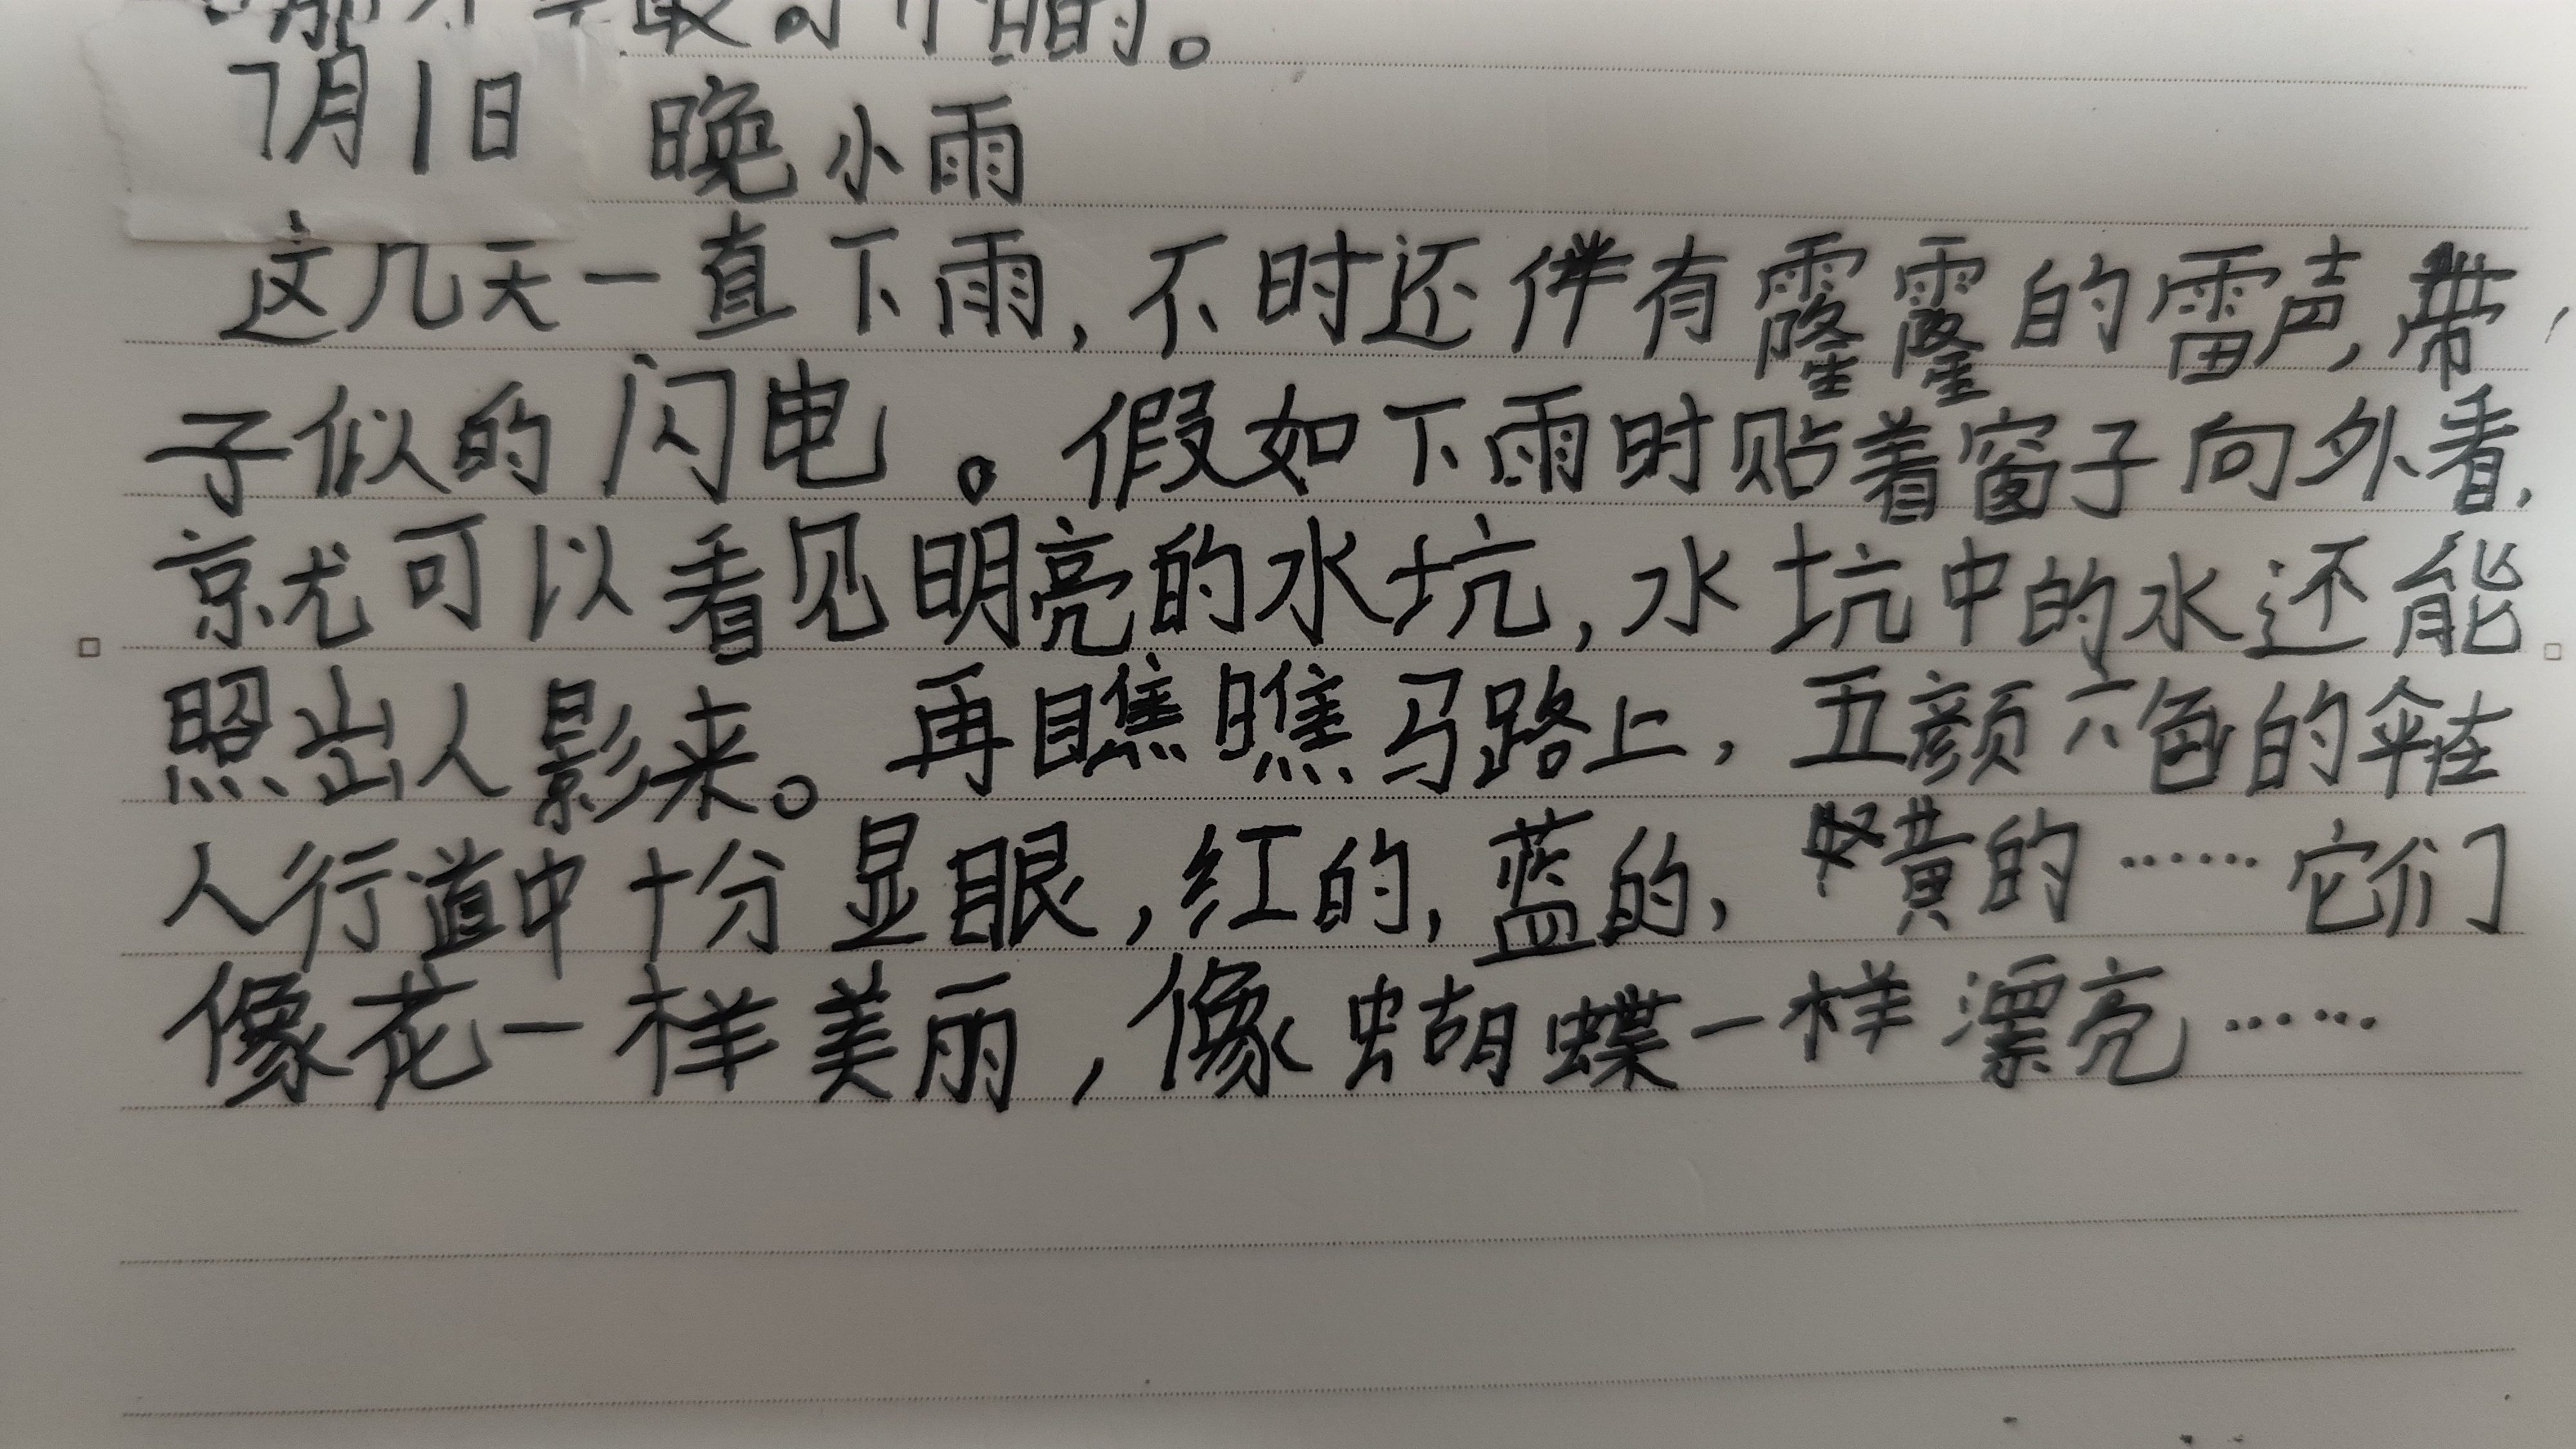 7月1日 晚小雨
这几天一直下雨,不时还伴有霳霳的雷声,带
子似的闪电。假如下雨时贴着窗子向外看,
就可以看见明亮的水坑,水坑中的水还能
照出人影来。再瞧瞧马路上,五颜六色的伞在
人行道中十分显眼,红的,蓝的,黄的……它们
像花一样美丽,像蝴蝶一样漂亮……